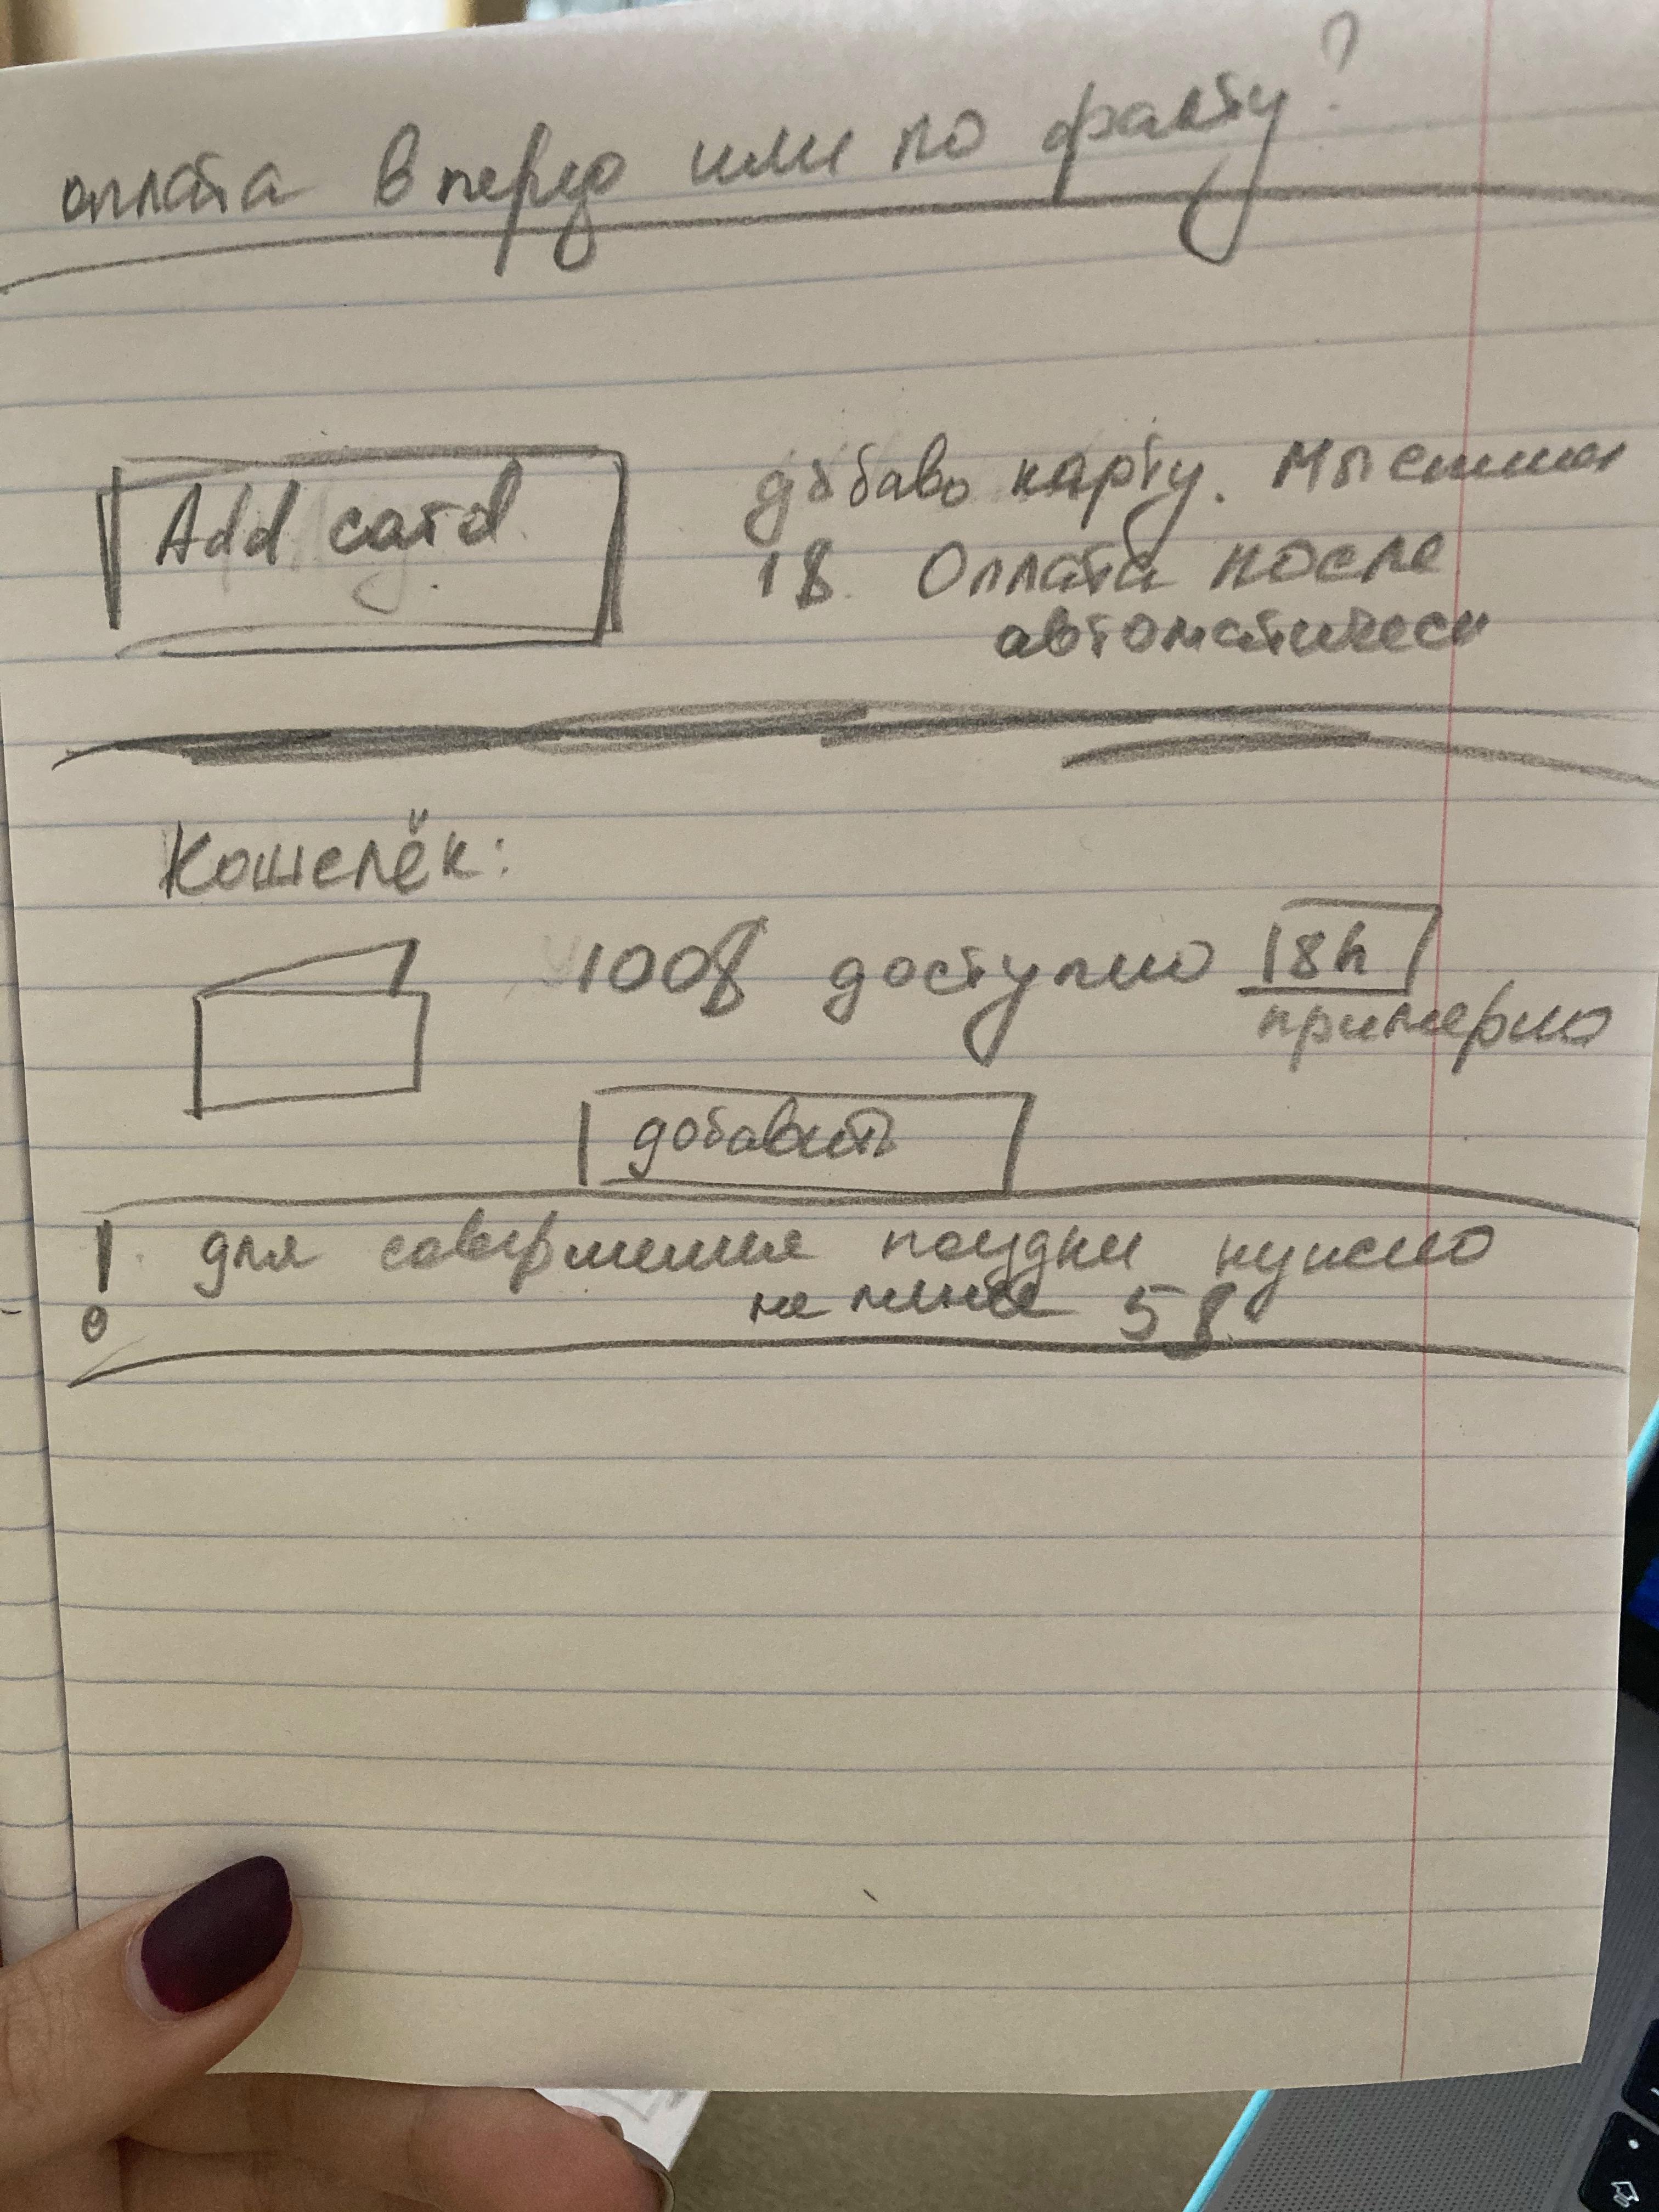 оплата вперед или по факту?
Add card
добавь карту. Мы спишем
1$. Оплата после
автоматическ
Кошелёк:
100$ доступно 18h
примерно
добавить
! для совершения поездки нужно
не менее 5$.